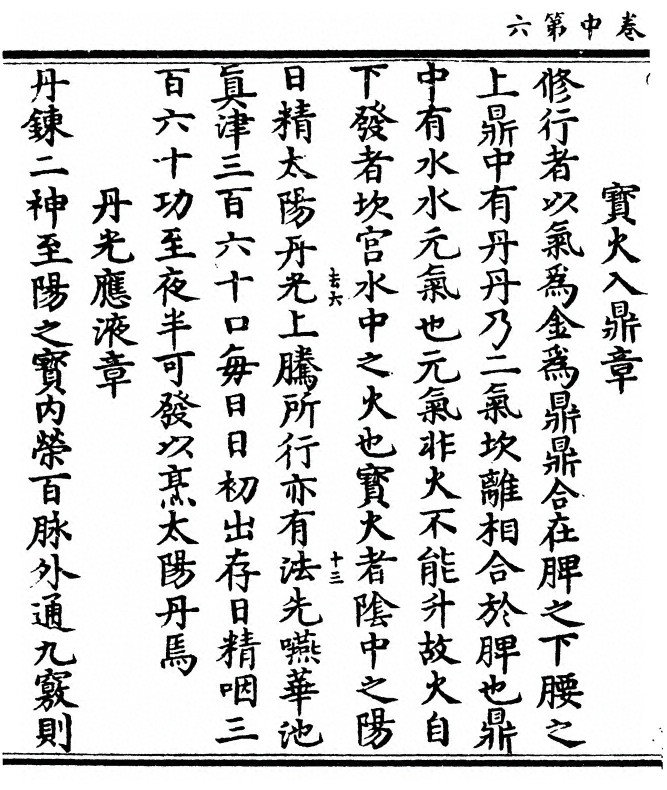 卷中第六
寶火入鼎章
修行者以氣爲金爲鼎鼎合在脾之下腰之
上鼎中有丹丹乃二氣坎離相合於脾也鼎
中有水水元氣也元氣非火不能升故火自
下發者坎宮水中之火也寶火者陰中之陽
去六
十三
日精太陽丹光上騰所行亦有法先嚥華池
眞津三百六十口每日日初出存日精咽三
百六十功至夜半可發以烹太陽丹焉
丹光應液章
丹鍊二神至陽之寶內榮百脉外通九竅則